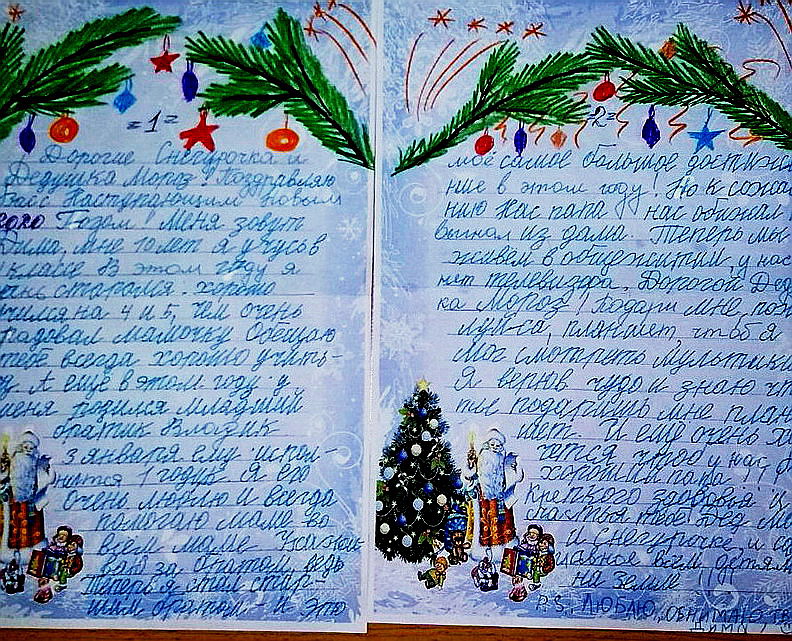 =1=
Дорогие Снегурочка и
Дедушка Мороз! Поздравляю
Васс Наступающим новым
Годом! Меня зовут
Дима, мне 10 лет я учусь в
классе. В этом году я
старался. хорошо
учился на 4 и 5, чем очень
радовал мамочку Обещаю
тебе всегда хорошо учить-
А ещё в этом году у
меня родился младший
братик Владик
3 января ему испол-
нится 1 годик. Я его
очень люблю и всегда
помогаю маме во
всём маме
ваю за братом, ведь
теперь я стал стар-
шим братом - и это
=2=
моё самое большое достиже
ние в этом году! Но к сожа
нию Нас папа нас обижал
выгнал из дома. Теперь мы
живём в общежитии, у нас
нет телевизора. Дорогой Дед
ка Мороз! Подари мне, пож
луйса, планшет, чтобы я
мог смотреть мультики
Я верю в чудо и знаю чт
ты подаришь мне план
шет. И ещё очень х
чется чтоб у нас
хороший папа
крепкого здоровья и
счастья тебе Дед Мо
и Снегурочке, и са
главное всем детям
на земле
P.S. Люблю, обнимаю, тв
Дима